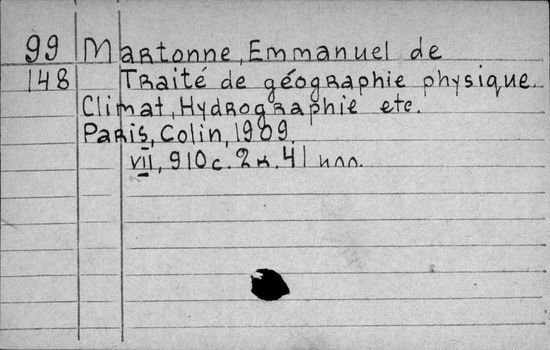 99 Martonne, Emmanuel de
148 Traité de géographie physique.
Climat, Hydrographie etc.
Paris, Colin, 1909.
VII, 910 с. 2 к. 41 илл.